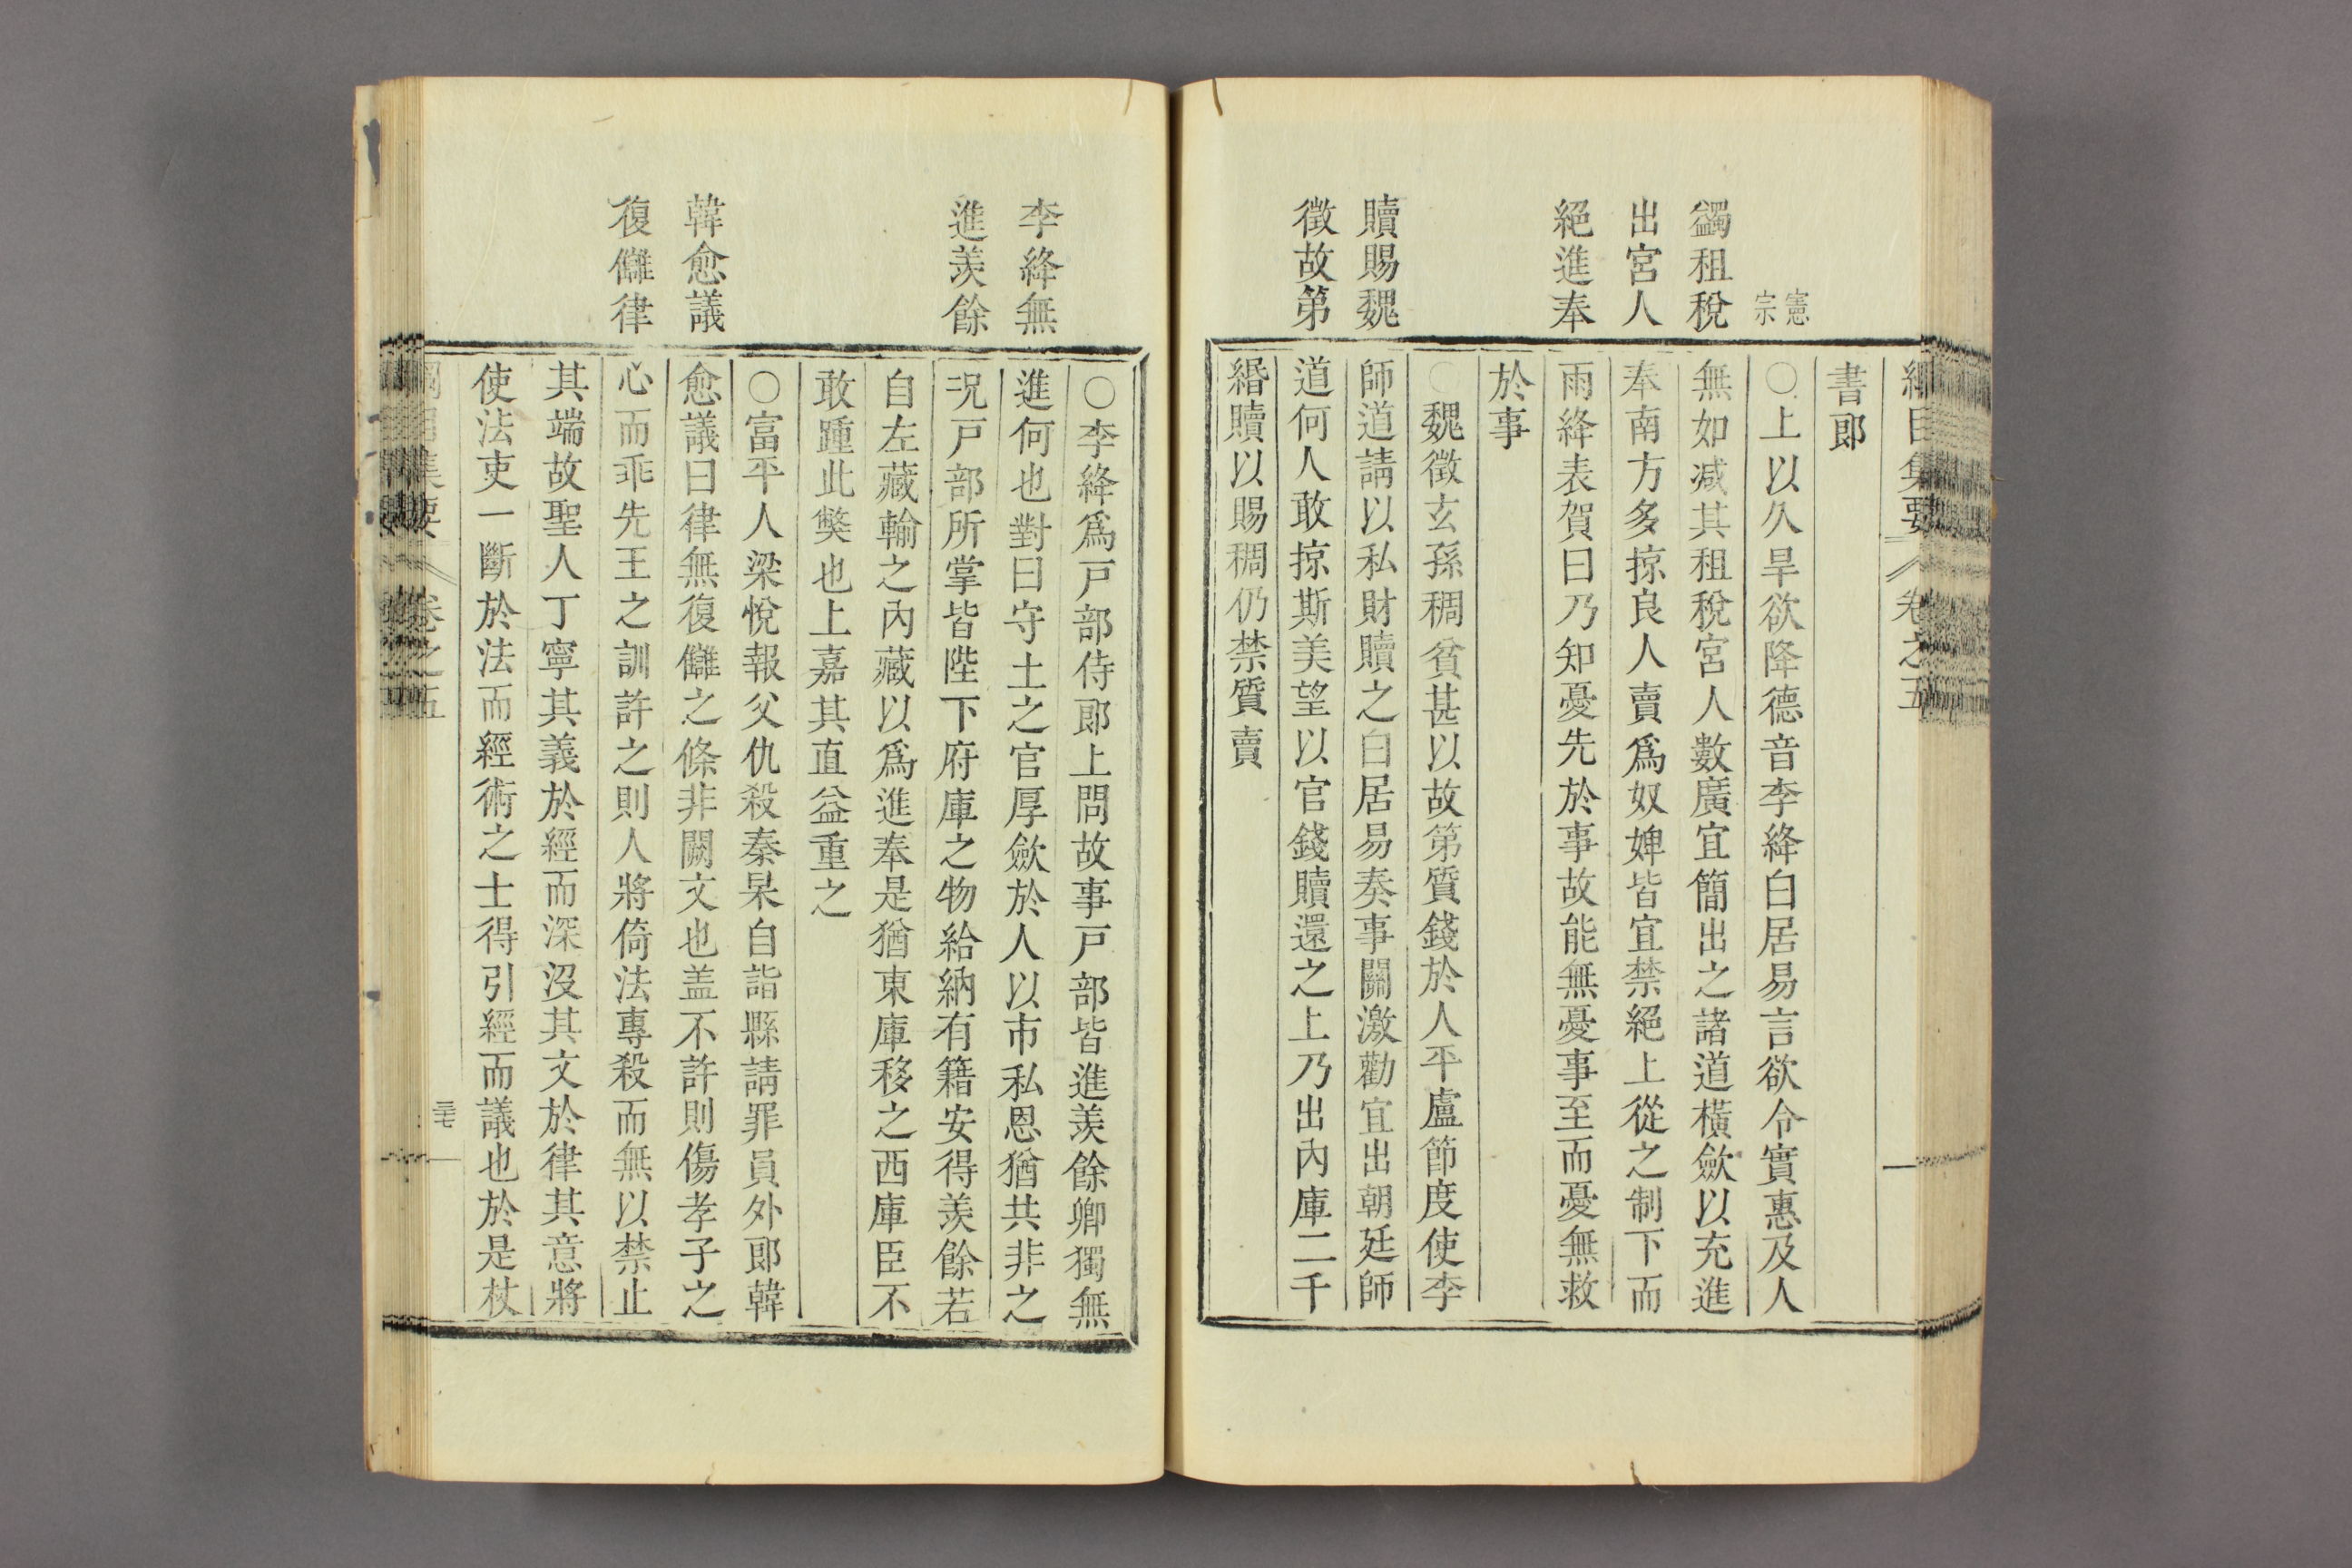 綱目集要 卷之五
憲宗
蠲租稅
出宮人
絕進奉
贖賜魏
徵故第
書郎
○上以久旱欲降德音李絳白居易言欲令實惠及人
無如减其租稅宮人數廣宜簡出之諸道橫歛以充進
奉南方多掠良人賣爲奴婢皆宜禁絕上從之制下而
雨絳表賀曰乃知憂先於事故能無憂事至而憂無救
於事
○魏徵玄孫稠貧甚以故第質錢於人平盧節度使李
師道請以私財贖之白居易奏事關激勸宜出朝廷師
道何人敢掠斯美望以官錢贖還之上乃出內庫二千
緡贖以賜稠仍禁質賣
李絳無
進羡餘
韓愈議
復讎律
○李絳爲戸部侍郎上問故事戸部皆進羡餘卿獨無
進何也對曰守土之官厚歛於人以市私恩猶共非之
况戸部所掌皆陛下府庫之物給納有籍安得羡餘若
自左藏輸之內藏以爲進奉是猶東庫移之西庫臣不
敢踵此獘也上嘉其直益重之
○富平人梁悅報父仇殺秦杲自詣縣請罪員外郎韓
愈議曰律無復讎之條非闕文也盖不許則傷孝子之
心而乖先王之訓許之則人將倚法專殺而無以禁止
其端故聖人丁寧其義於經而深沒其文於律其意將
使法吏一斷於法而經術之士得引經而議也於是杖
綱目集要 卷之五 三七